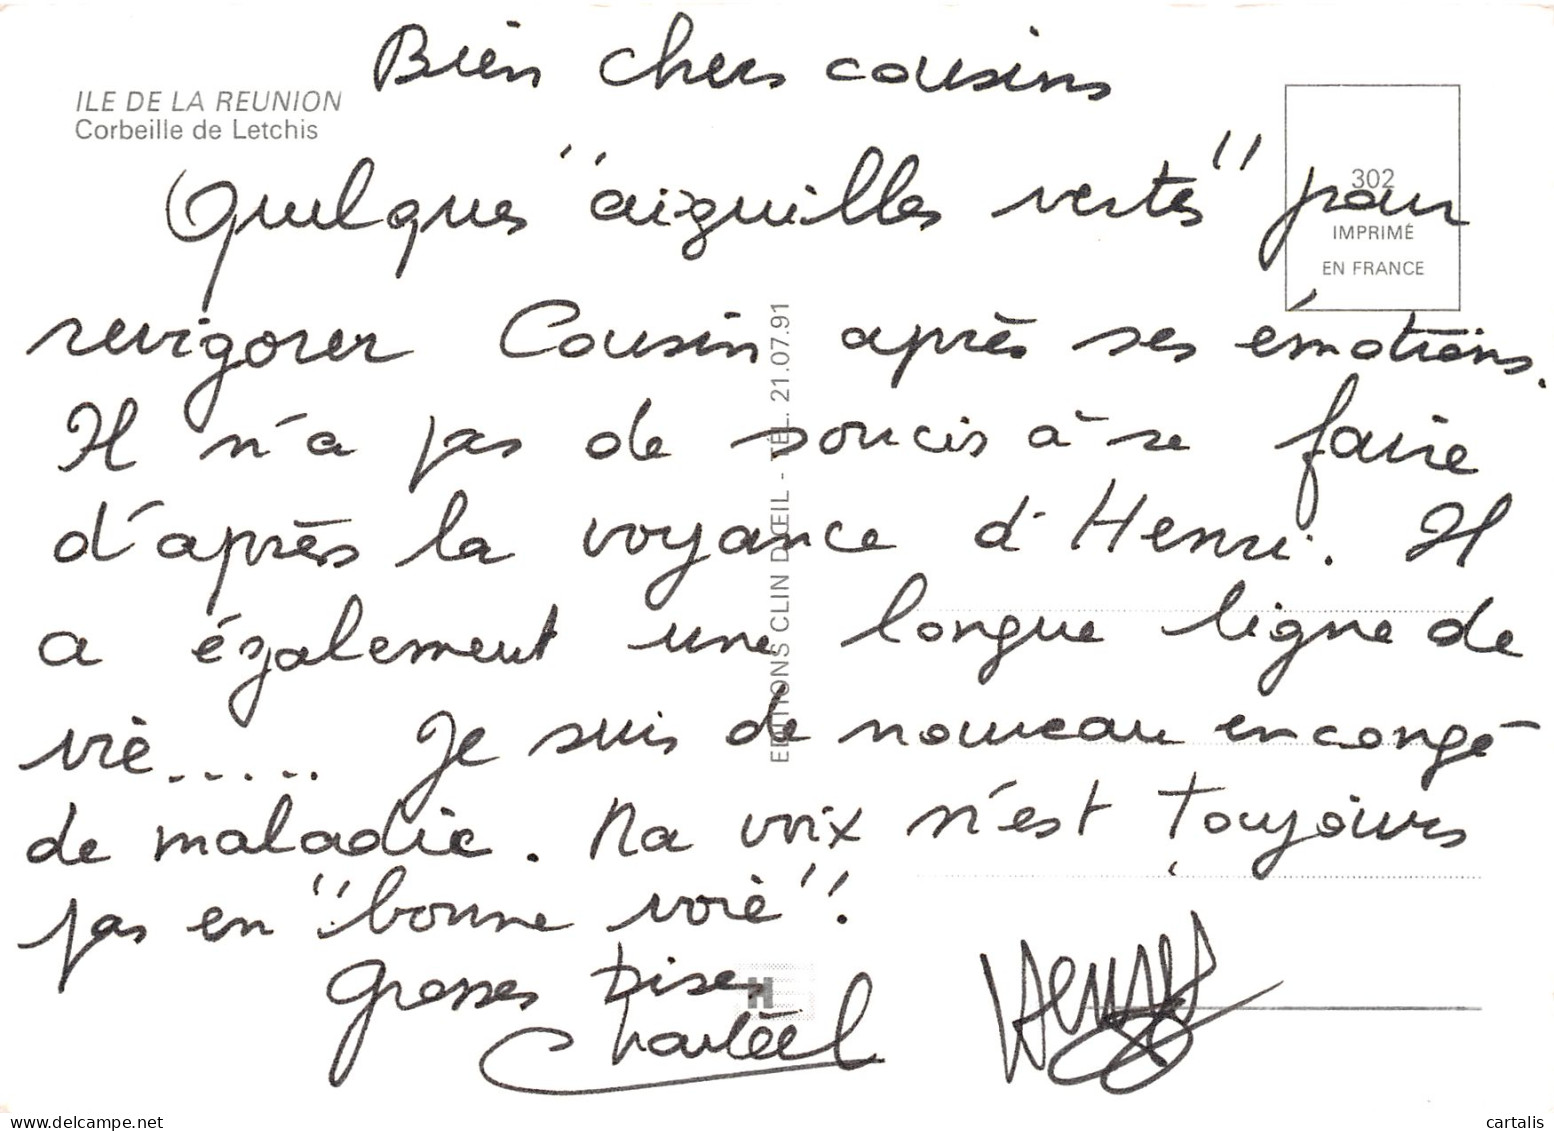 Bien chers cousins
ILE DE LA REUNION
Corbeille de Letchis
302
IMPRIMÉ
EN FRANCE
Quelques "aiguilles vertes" pour
revigorer Cousin après ses émotions.
Il n'a pas de soucis à se faire
d'après la voyance d'Henri. Il
a également une longue ligne de
vie..... Je suis de nouveau en congé
de maladie. Ma voix n'est toujours
pas en "bonne voie".
Grosses bises
EDITIONS CLIN D'ŒIL - TÉL. 21.07.91
H
delcampe.net
cartalis